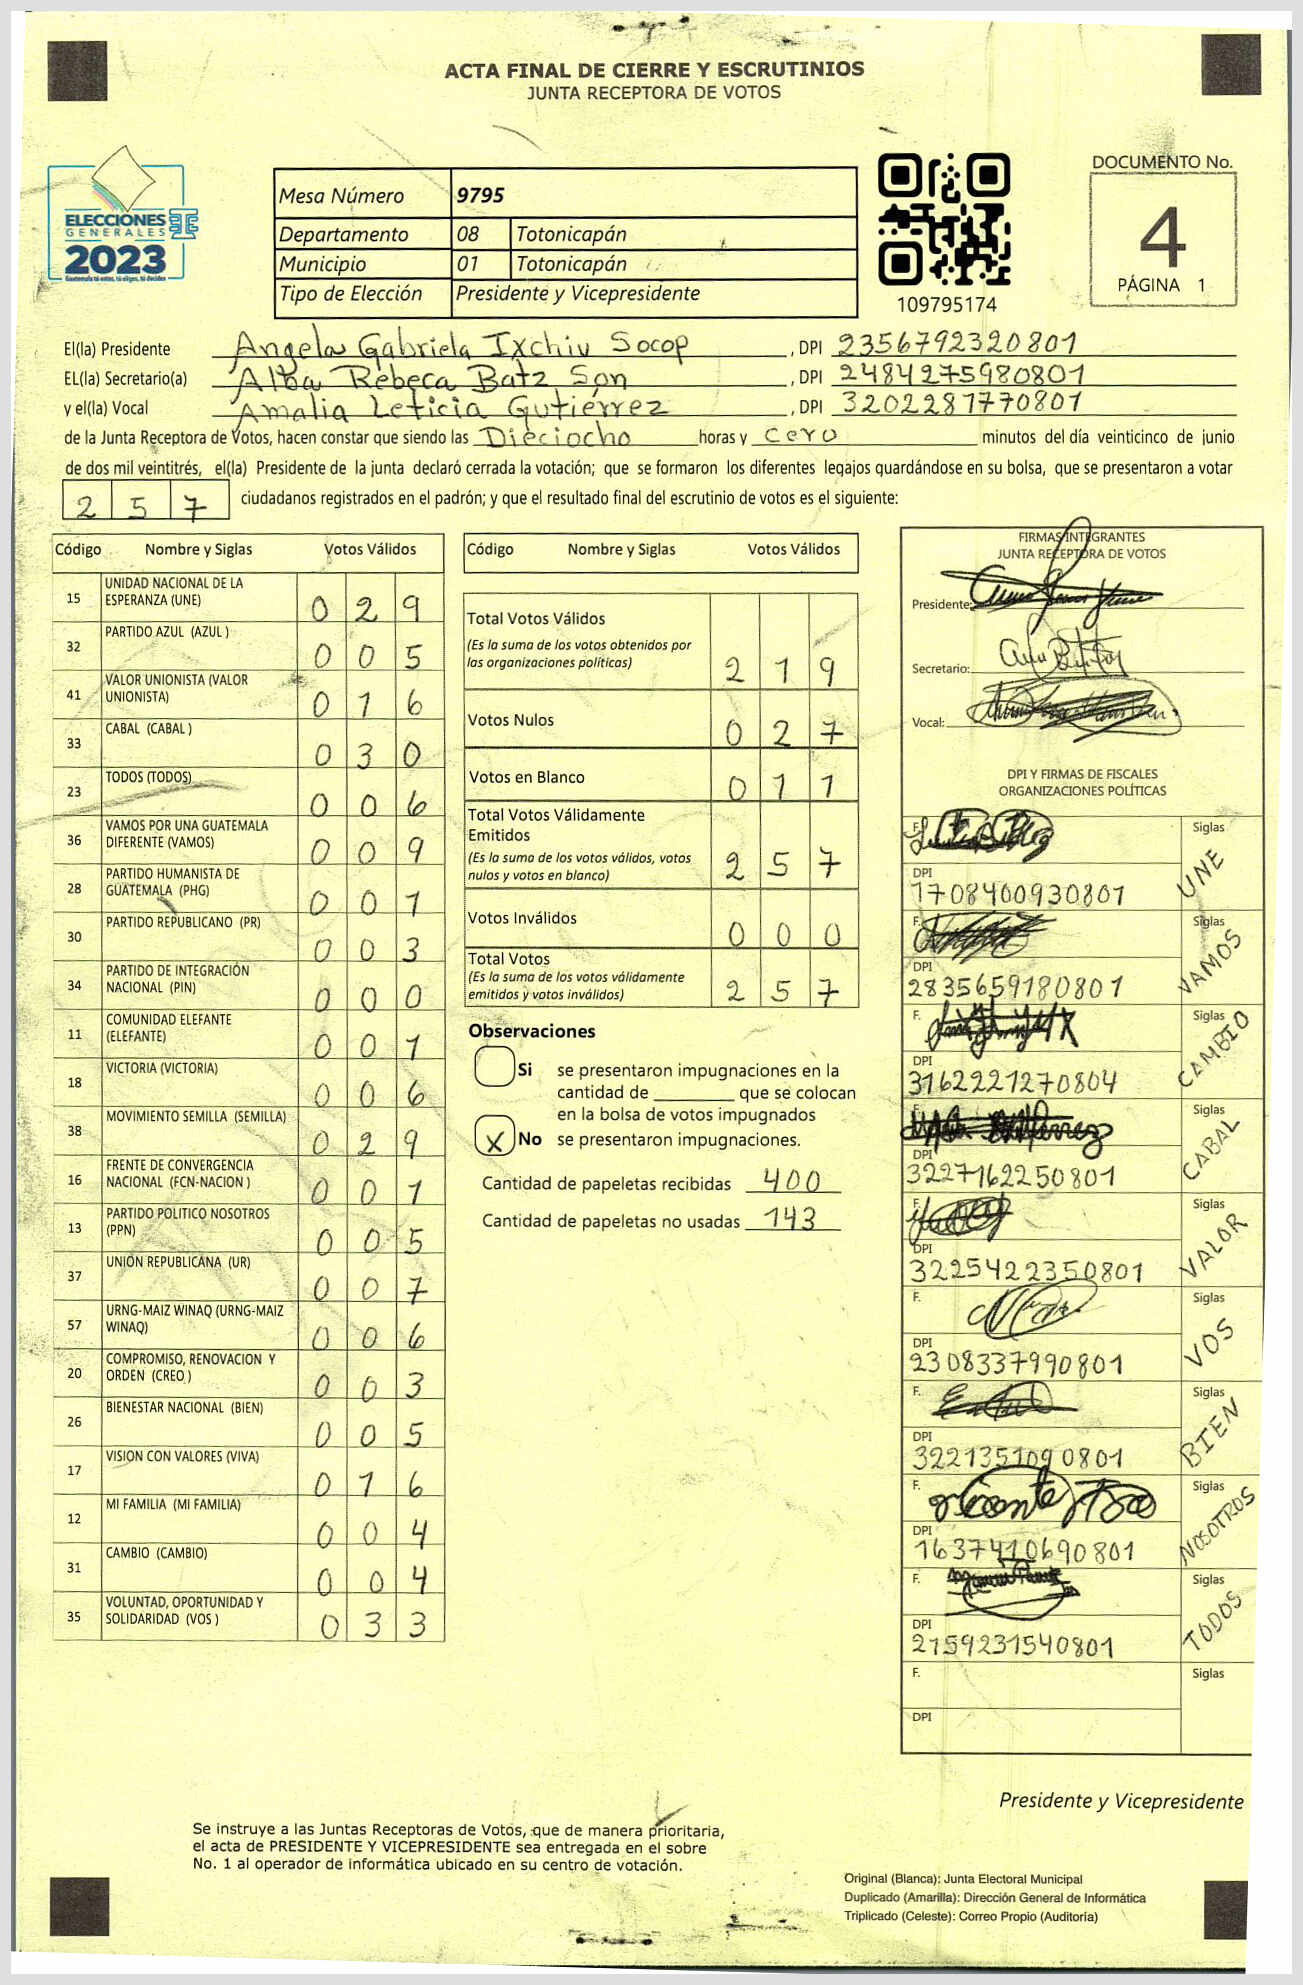 ACTA FINAL DE CIERRE Y ESCRUTINIOS
JUNTA RECEPTORA DE VOTOS
ELECCIONES
GENERALES
2023
Guatemala tú estas, tú eliges, tú decides
Mesa Número 9795
Departamento 08 Totonicapán
Municipio 01 Totonicapán
Tipo de Elección Presidente y Vicepresidente
109795174
DOCUMENTO No.
4
PÁGINA 1
El(la) Presidente Angela Gabriela Ixchiu Socop , DPI 2356792320801
EL(la) Secretario(a) Alba Rebeca Batz Son , DPI 2484275980801
y el(la) Vocal Amalia Leticia Gutiérrez , DPI 3202281770801
de la Junta Receptora de Votos, hacen constar que siendo las Dieciocho horas y cero minutos del día veinticinco de junio
de dos mil veintitrés, el(la) Presidente de la junta declaró cerrada la votación; que se formaron los diferentes legajos guardándose en su bolsa, que se presentaron a votar
2 5 7 ciudadanos registrados en el padrón; y que el resultado final del escrutinio de votos es el siguiente:
Código Nombre y Siglas Votos Válidos
15 UNIDAD NACIONAL DE LA
ESPERANZA (UNE) 0 2 9
32 PARTIDO AZUL (AZUL ) 0 0 5
41 VALOR UNIONISTA (VALOR
UNIONISTA) 0 1 6
33 CABAL (CABAL ) 0 3 0
23 TODOS (TODOS) 0 0 6
36 VAMOS POR UNA GUATEMALA
DIFERENTE (VAMOS) 0 0 9
28 PARTIDO HUMANISTA DE
GUATEMALA (PHG) 0 0 1
30 PARTIDO REPUBLICANO (PR) 0 0 3
34 PARTIDO DE INTEGRACIÓN
NACIONAL (PIN) 0 0 0
11 COMUNIDAD ELEFANTE
(ELEFANTE) 0 0 1
18 VICTORIA (VICTORIA) 0 0 6
38 MOVIMIENTO SEMILLA (SEMILLA) 0 2 9
16 FRENTE DE CONVERGENCIA
NACIONAL (FCN-NACION ) 0 0 1
13 PARTIDO POLITICO NOSOTROS
(PPN) 0 0 5
37 UNION REPUBLICANA (UR) 0 0 7
57 URNG-MAIZ WINAQ (URNG-MAIZ
WINAQ) 0 0 6
20 COMPROMISO, RENOVACION Y
ORDEN (CREO ) 0 0 3
26 BIENESTAR NACIONAL (BIEN) 0 0 5
17 VISION CON VALORES (VIVA) 0 1 6
12 MI FAMILIA (MI FAMILIA) 0 0 4
31 CAMBIO (CAMBIO) 0 0 4
35 VOLUNTAD, OPORTUNIDAD Y
SOLIDARIDAD (VOS ) 0 3 3
Código Nombre y Siglas Votos Válidos
Total Votos Válidos
(Es la suma de los votos obtenidos por
las organizaciones políticas) 2 1 9
Votos Nulos 0 2 7
Votos en Blanco 0 1 1
Total Votos Válidamente
Emitidos
(Es la suma de los votos válidos, votos
nulos y votos en blanco) 2 5 7
Votos Inválidos 0 0 0
Total Votos
(Es la suma de los votos válidamente
emitidos y votos inválidos) 2 5 7
Observaciones
Si se presentaron impugnaciones en la
cantidad de ________ que se colocan
en la bolsa de votos impugnados
X No se presentaron impugnaciones.
Cantidad de papeletas recibidas 400
Cantidad de papeletas no usadas 143
FIRMAS INTEGRANTES
JUNTA RECEPTORA DE VOTOS
Presidente:
Secretario:
Vocal:
DPI Y FIRMAS DE FISCALES
ORGANIZACIONES POLÍTICAS
F. Siglas
DPI UNE
1708400930801
Siglas
DPI VAMOS
2835659180801
F. Siglas
DPI CAMBIO
3162221270804
F. Siglas
DPI CABAL
3227162250801
F. Siglas
DPI VALOR
3225422350801
F. Siglas
DPI VOS
2308337990801
F. Siglas
DPI BIEN
3221351090801
F. Siglas
DPI NOSOTROS
1637410690801
F. Siglas
DPI TODOS
2159231540801
F. Siglas
DPI
Presidente y Vicepresidente
Se instruye a las Juntas Receptoras de Votos, que de manera prioritaria,
el acta de PRESIDENTE Y VICEPRESIDENTE sea entregada en el sobre
No. 1 al operador de informática ubicado en su centro de votación.
Original (Blanca): Junta Electoral Municipal
Duplicado (Amarilla): Dirección General de Informática
Triplicado (Celeste): Correo Propio (Auditoría)